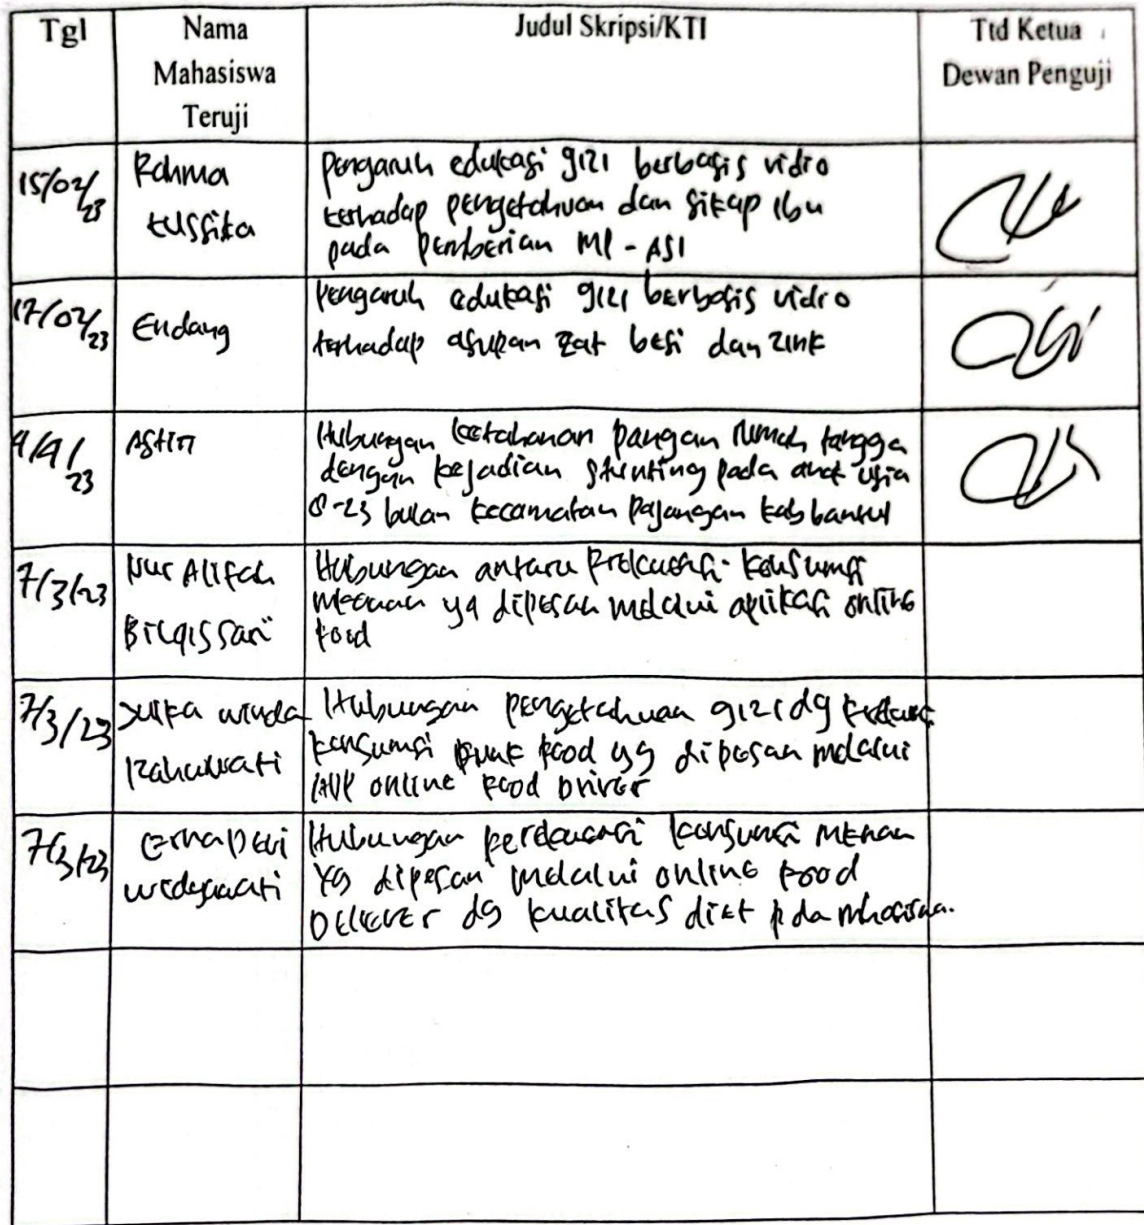 Tgl
Nama
Mahasiswa
Teruji
Judul Skripsi/KTI
Ttd Ketua
Dewan Penguji
15/02/23
Rahma
tussika
pengaruh edukasi gizi berbasis vidio
terhadap pengetahuan dan sikap ibu
pada pemberian MP-ASI
17/02/23
Endang
pengaruh edukasi gizi berbasis vidio
terhadap asupan zat besi dan zink
/23
Astiti
Hubungan ketahanan pangan rumah tangga
dengan kejadian stunting pada anak usia
-23 bulan kecamatan pajangan kab bantul
7/3/23
Nur Alifah
Bilqissari
Hubungan antara konsumsi
yg dipesan melalui aplikasi online
food
7/3/23
winda
Rahmawati
Hubungan pengetahuan gizi dg
konsumsi food yg dipesan melalui
app online food driver
7/3/23
Erna Dewi
widyawati
Hubungan konsumsi
yg dipesan melalui online food
dg kualitas diet pda